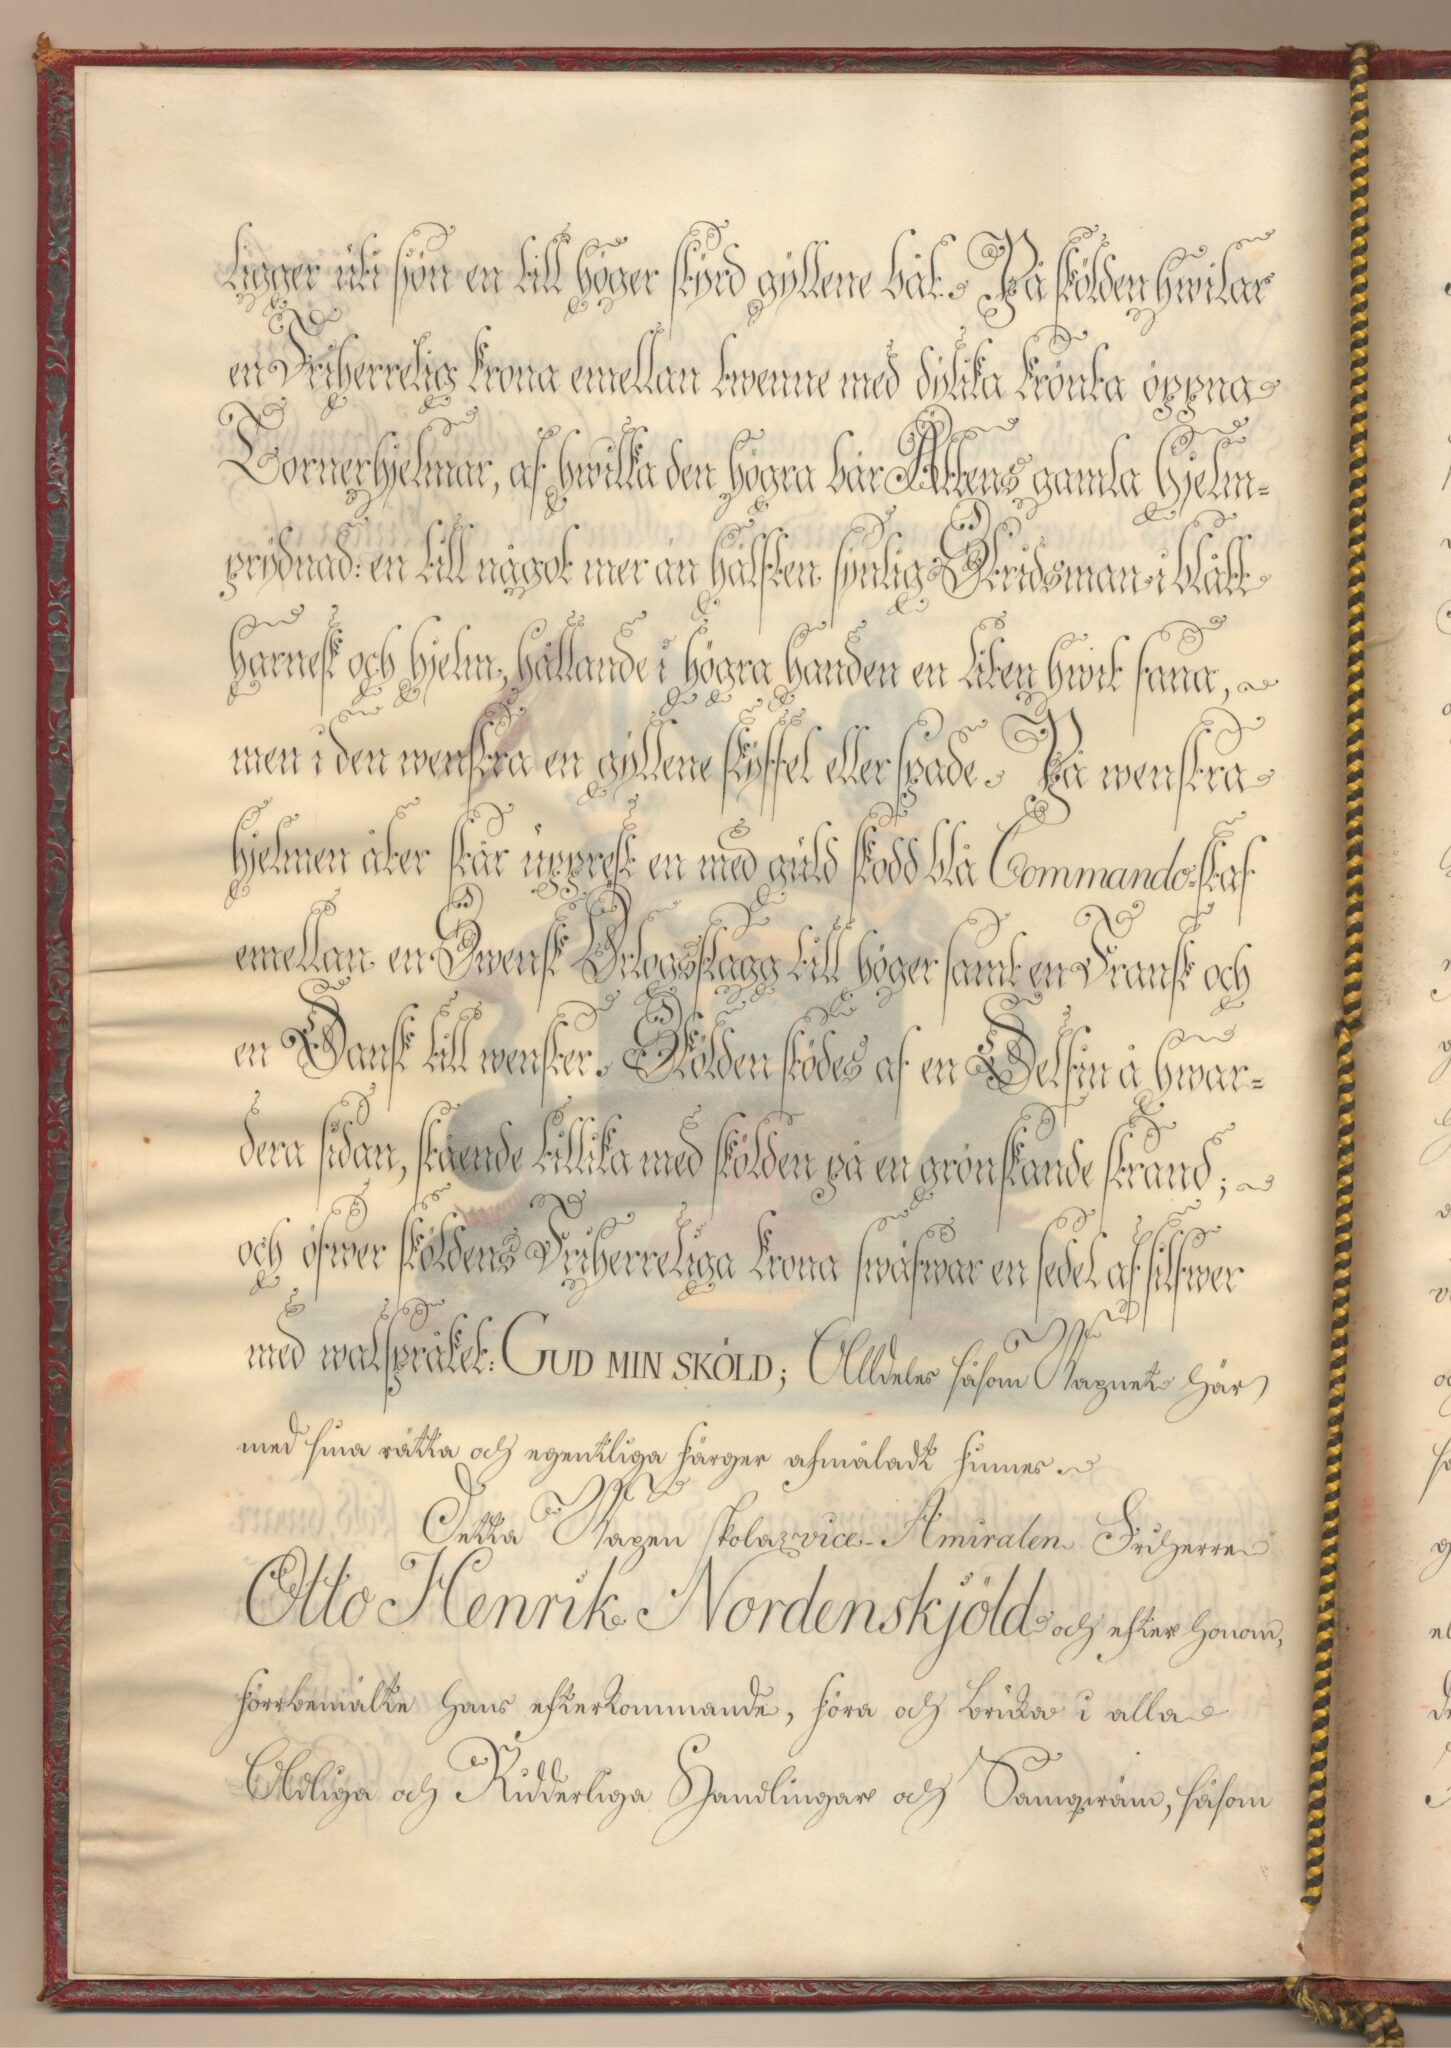 ligger uti sjön en till höger styrd gyllene båt. På skölden hwilar
en Friherrelig krona emellan twenne med dylika krönta öppna
Tornerhjelmar, af hwilka den högra bär Ättens gamla hjelm=
prydnad: en till något mer än hälften synlig Stridsman i blått
harnesk och hjelm, hållande i högra handen en liten hwit fana,
men i den wenstra en gyllene skyffel eller spade. På wenstra
hjelmen åter står upprest en med guld skodd blå Commando-staf
emellan en Swensk Örlogsflagg till höger samt en Fransk och
en Dansk till wenster. Skölden stödes af en Delfin å hwar=
dera sidan, stående tillika med skölden på en grönskande strand;
och öfwer sköldens Friherreliga krona swäfwar en sedel af silfwer
med walspråket: GUD MIN SKÖLD; Alldeles såsom Wapnet här
med sina rätta och egentliga färger afmåladt finnes.
Detta Wapen skola vice-Amiralen Friherre
Otto Henrik Nordenskjöld och efter honom,
förrbemälte hans efterkommande, föra och bruka i alla
Adliga och Ridderliga Handlingar och Samqwäm, såsom